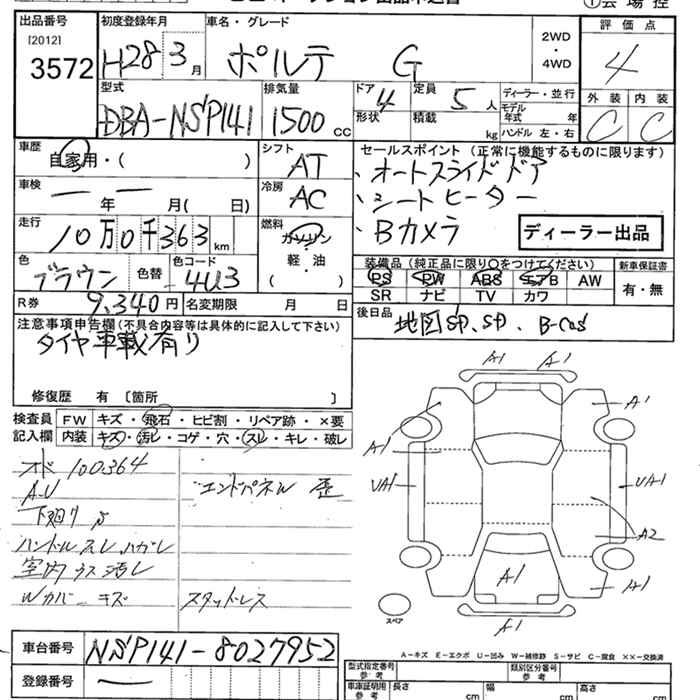 ①会場控
出品番号
[2012]
3572
初度登録年月
H28 3月
車名・グレード
ポルテ G
2WD
・
4WD
評価点
4
外装 内装
C C
型式
DBA-NSP141
排気量
1500 CC
ドア 4
形状
定員 5 人
積載 kg
ディーラー・並行
モデル年式 年
ハンドル 左・右
車歴
自家用・( )
シフト
AT
車検
年 月( 日)
冷房
AC
走行
10万0千363 km
燃料
ガソリン
軽・油
( )
色
ブラウン
色替
色コード
4U3
R券 9,340円
名変期限 月 日
セールスポイント (正常に機能するものに限ります)
・オートスライドドア
・シートヒーター
・Bカメラ
ディーラー出品
装備品(純正品に限り○をつけてください)
新車保証書
PS PW ABS エアB AW
SR ナビ TV カワ
有・無
後日品
地図SD、SD、B-cas
注意事項申告欄(不具合内容等は具体的に記入して下さい)
タイヤ車載有り
修復歴 有 〔箇所 〕
検査員
記入欄
FW キズ・飛石・ヒビ割・リペア跡・×要
内装 キズ・汚レ・コゲ・穴・スレ・キレ・破レ
100364
A-U
エンドパネル 歪
下廻りS
ハンドルスレハガレ
室内ウス汚レ
Wカバーキズ
スタッドレス
A1 A1
A1
A1
UA1
UA1
A2
A1
A1
A1
スペア
A-キズ E-エクボ U-凹み W-補修跡 S-サビ C-腐食 ××-交換済
車台番号 NSP141-8027952
登録番号 ―
型式指定番号
参考
類別区分番号
参考
車庫証明用
参考
長さ cm
幅 cm
高さ cm